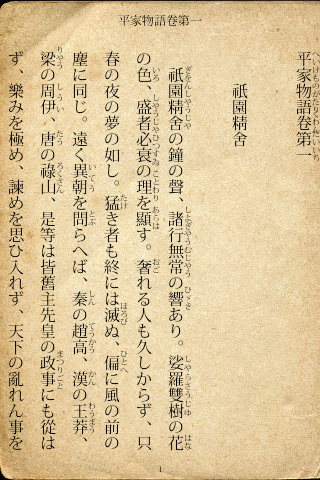 平家物語卷第一
平家物語卷第一
祇園精舍
祇園精舍の鐘の聲、諸行無常の響あり。娑羅雙樹の花
の色、盛者必衰の理を顯す。奢れる人も久しからず、只
春の夜の夢の如し。猛き者も終には滅ぬ、偏に風の前の
塵に同じ。遠く異朝を問らへば、秦の趙高　漢の王莽、
梁の周伊、唐の祿山、是等は皆舊主先皇の政事にも從は
ず、樂みを極め、諫めを思ひ入れず、天下の亂れん事を
1